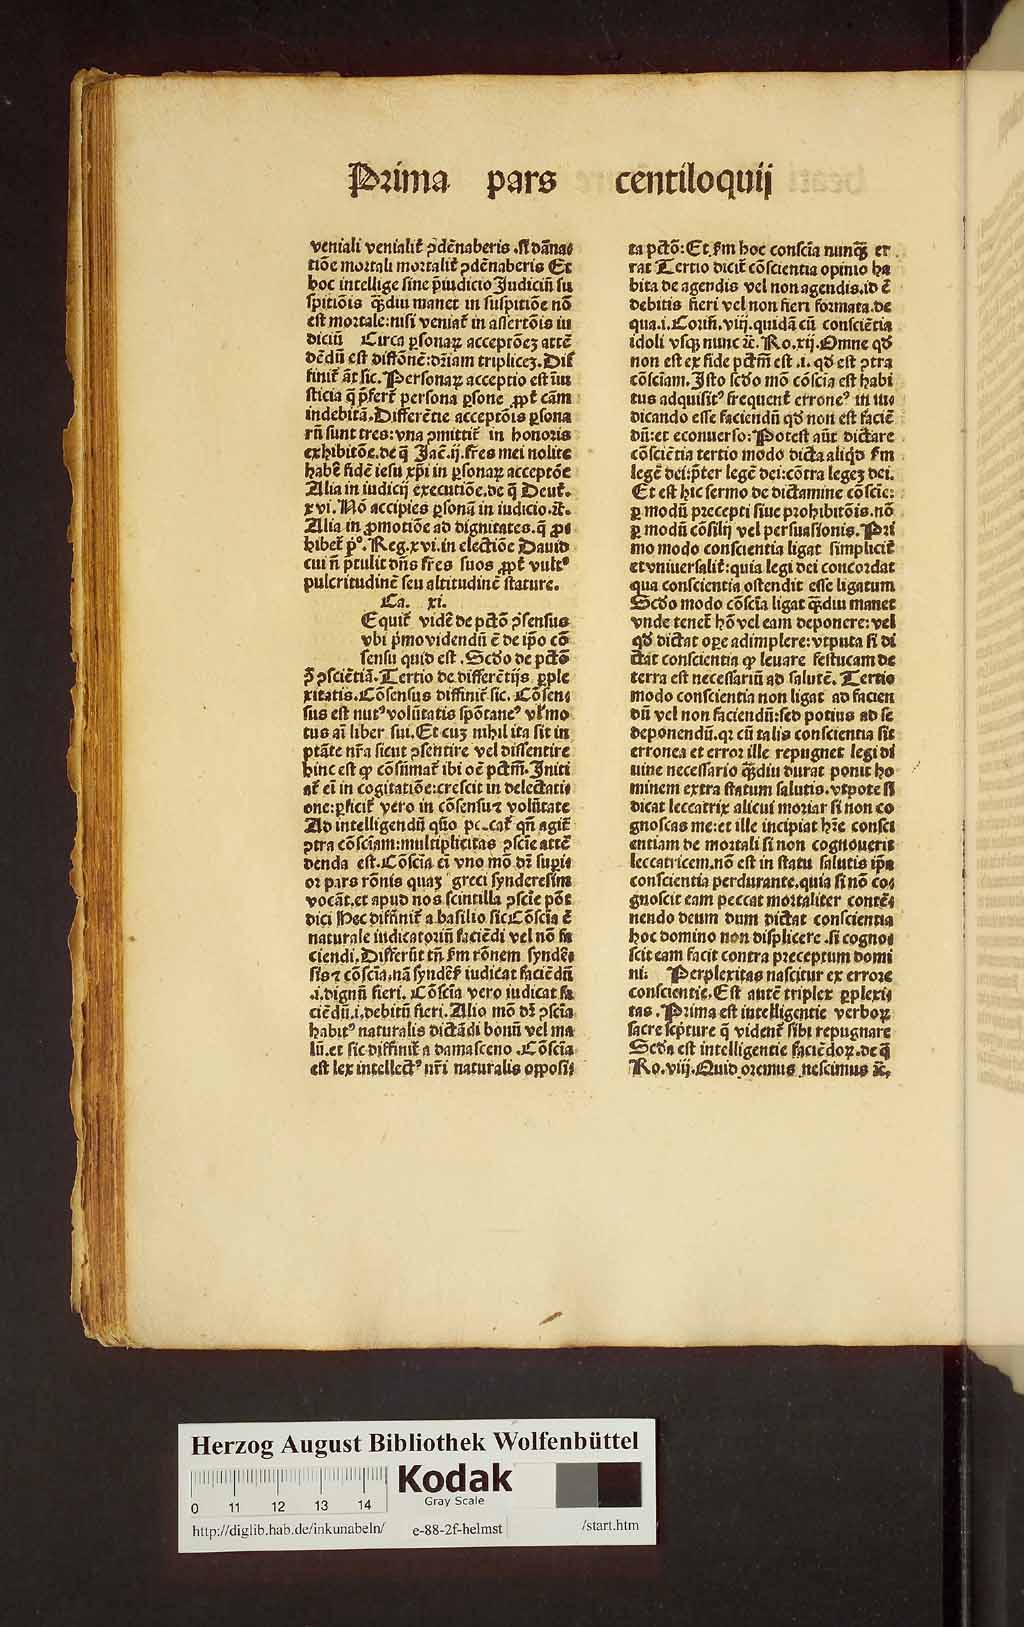 Prima pars centiloquij
veniali venialit̃ ꝯdẽnaberis .si dãna⸗
tiõe mortali mortalit̃ ꝯdẽnaberis Et
hoc intellige sine p̃iudicio Judiciũ su
spitiõis q̃ꝫdiu manet in suspitiõe nõ
est mortale:nisi veniat̃ in assertõis iu
diciũ Circa ꝑsonaꝝ acceptõeꝫ attẽ
dẽdũ est diffõnẽ:dr̃iam tripliceꝫ. Dif
finit̃ ãt sic. Personaꝝ acceptio est iniu
sticia q̃ p̃fert̃ persona ꝑsone ꝓpt̃ cãm
indebitã. Differẽtie acceptõis ꝑsona
rũ sunt tres: vna ꝯmittit̃ in honoris
exhibitõe.de q̃ Jac̃.ij. fr̃es mei nolite
habẽ fidẽ iesu xp̃i in ꝑsonaꝝ acceptõe
Alia in iudicij executiõe.de q̃ Deut̃.
xvi. Nõ accipies ꝑsonã in iudicio.ꝛc̃.
Alia in ꝓmotiõe ad dignitates.q̃ ꝓ⸗
hibet̃ pº. Reg.xvi. in electiõe Dauid
cui ñ p̃tulit dñs fr̃es suos ꝓpt̃ vultꝰ
pulcritudinẽ seu altitudinẽ stature.
Ca. xi.
Equit̃ videˉ de pctõ ꝯ̃sensus
vbi p̃mo videndũ ẽ de ip̃o cõ
sensu quid est . Scd̃o de pctõ
p̃ ꝯsciẽtiã. Tertio de differẽtijs ꝑple
xitatis. Cõsensus diffinit̃ sic. Cõsen⸗
sus est nutꝰ volũtatis spõtaneꝰ vl̃ mo
tus aĩ liber sui. Et cuꝫ nihil ita sit in
ptãte nr̃a sicut ꝯsentire vel dissentire
hinc est ꝙ cõsũmat̃ ibi oẽ pctm̃. Initi
at̃ ei in cogitatiõe:crescit in delectati⸗
one:ꝑficit̃ vero in cõsensuꝛ volũtate
Ad intelligendũ quõ peccat̃ qñ agit̃
ꝯtra cõsciam:multiplicitas ꝯscie attẽ
denda est. Cõscia ei vno mõ dr̃ supi⸗
or pars rõnis quaꝫ greci synderesim
vocãt.et apud nos scintilla ꝯscie põt
dici Nec diffinit̃ a basilio sic Cõscia ẽ
naturale iudicatoriũ faciẽdi vel nõ fa
ciendi. Differũt tñ fm̃ rõnem syndẽ⸗
sisꝛ cõscia.nã syndẽs̃ iudicat faciẽdũ
.i.dignũ fieri. Cõscia vero iudicat fa
ciẽdũ.i.debitũ fieri. Alio mõ dr̃ ꝯscia
habitꝰ naturalis dictãdi bonũ vel ma
lũ.et sic diffinit̃ a damasceno . Cõscia
est lex intellectꝰ nr̃i naturalis opposi⸗
ta pctõ: Et fm̃ hoc consciã nunq̃ꝫ er
rat Tertio dicit̃ cõscientia opinio ha
bita de agendis vel non agendis.id ẽ
debitis fieri vel non fieri formata.de
qua.i.Corin̄.viij.quidã cũ consciẽtia
idoli vsqꝫ nunc ꝛc̃. Ro.xij. Omne qd̃
non est ex fide pctm̃ est .i. qd̃ est ꝯtra
cõsciam. Isto scd̃o mõ cõscia est habi
tus adquisitꝰ frequent̃ erroneꝰ in iu⸗
dicando esse faciendũ qd̃ non est faciẽ
dũ:et econuerso: Potest aũt dictare
cõsciẽtia tertio modo dicta aliqd̃ fm̃
legẽ dei:p̃ter legẽ dei:cõtra legeꝫ dei.
Et est hic sermo de dictamine cõscie:
ꝑ modũ precepti siue prohibitõis.nõ
ꝑ modũ cõsilij vel persuasionis. Pri
mo modo conscientia ligat simplicit̃
et vniuersalit̃:quia legi dei concordat
qua conscientia ostendit esse ligatum
Scd̃o modo cõscia ligat q̃ꝫdiu manet
vnde tenet̃ hõ vel eam deponere: vel
qd̃ dictat oꝑe adimplere: vtputa si di
ctat conscientia ꝙ leuare festucam de
terra est necessariũ ad salutẽ. Tertio
modo conscientia non ligat ad facien
dũ vel non faciendũ:sed potius ad se
deponendũ.qꝛ cũ talis conscientia sit
erronea et error ille repugnet legi di
uine necessario q̃ꝫdiu durat ponit ho
minem extra statum salutis. vtpote si
dicat leccatrix alicui moriar si non co
gnoscas me:et ille incipiat hr̃e consci
entiam de mortali si non cognouerit
leccatricem.nõ est in statu salutis ip̃a
conscientia perdurante.quia si nõ co⸗
gnoscit eam peccat mortaliter contẽ⸗
nendo deum dum dictat conscientia
hoc domino non displicere .si cogno⸗
scit eam facit contra preceptum domi
ni: Perplexitas nascitur ex errore
conscientie. Est autẽ triplex ꝑplexi⸗
tas . Prima est intelligentie verboꝝ
sacre scpture q̃ vident̃ sibi repugnare
Scd̃a est intelligentie faciẽdoꝝ.de q̃
Ro.viij. Quid oremus nescimus ꝛc̃.
Herzog August Bibliothek Wolfenbüttel
Kodak
Gray Scale
0 11 12 13 14
http://diglib.hab.de/inkunabeln/ e-88-2f-helmst /start.htm